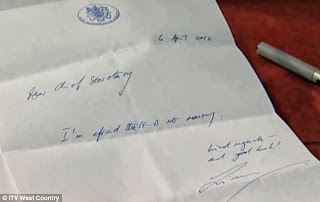 6 April 2010
Dear Chief Secretary
I'm afraid there is no money.
Kind regards -
and good luck!
Liam
© ITV West Country